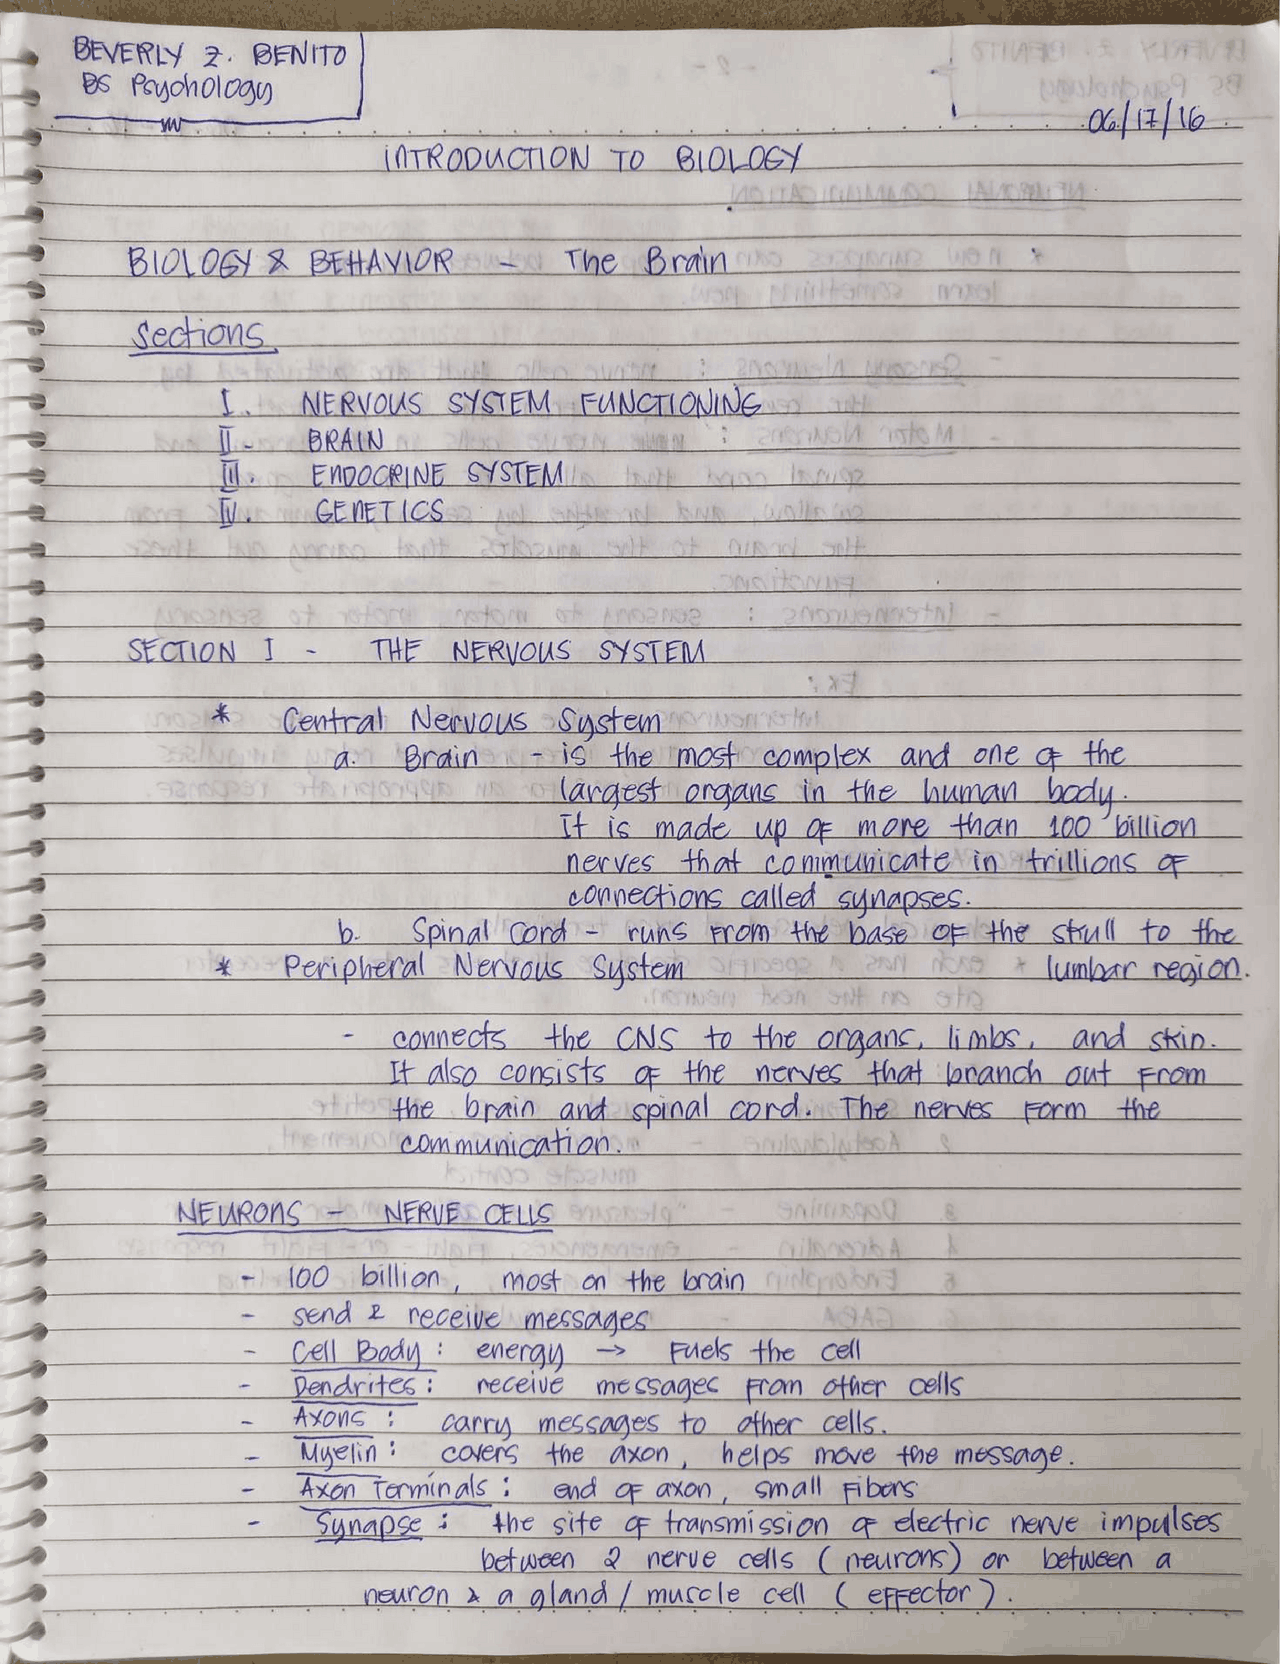 BEVERLY Z. BENITO
BS Psychology
06/17/16
INTRODUCTION TO BIOLOGY
BIOLOGY & BEHAVIOR - The Brain
Sections
I. NERVOUS SYSTEM FUNCTIONING
II. BRAIN
III. ENDOCRINE SYSTEM
IV. GENETICS
SECTION I - THE NERVOUS SYSTEM
* Central Nervous System
a. Brain - is the most complex and one of the
largest organs in the human body.
It is made up of more than 100 billion
nerves that communicate in trillions of
connections called synapses.
b. Spinal Cord - runs from the base of the skull to the
lumbar region.
* Peripheral Nervous System
- connects the CNS to the organs, limbs, and skin.
It also consists of the nerves that branch out from
the brain and spinal cord. The nerves form the
communication.
NEURONS - NERVE CELLS
- 100 billion, most on the brain
- send & receive messages
- Cell Body : energy → fuels the cell
- Dendrites : receive messages from other cells
- Axons : carry messages to other cells.
- Myelin : covers the axon, helps move the message.
- Axon Terminals : end of axon, small fibers
- Synapse : the site of transmission of electric nerve impulses
between 2 nerve cells (neurons) or between a
neuron & a gland / muscle cell (effector).